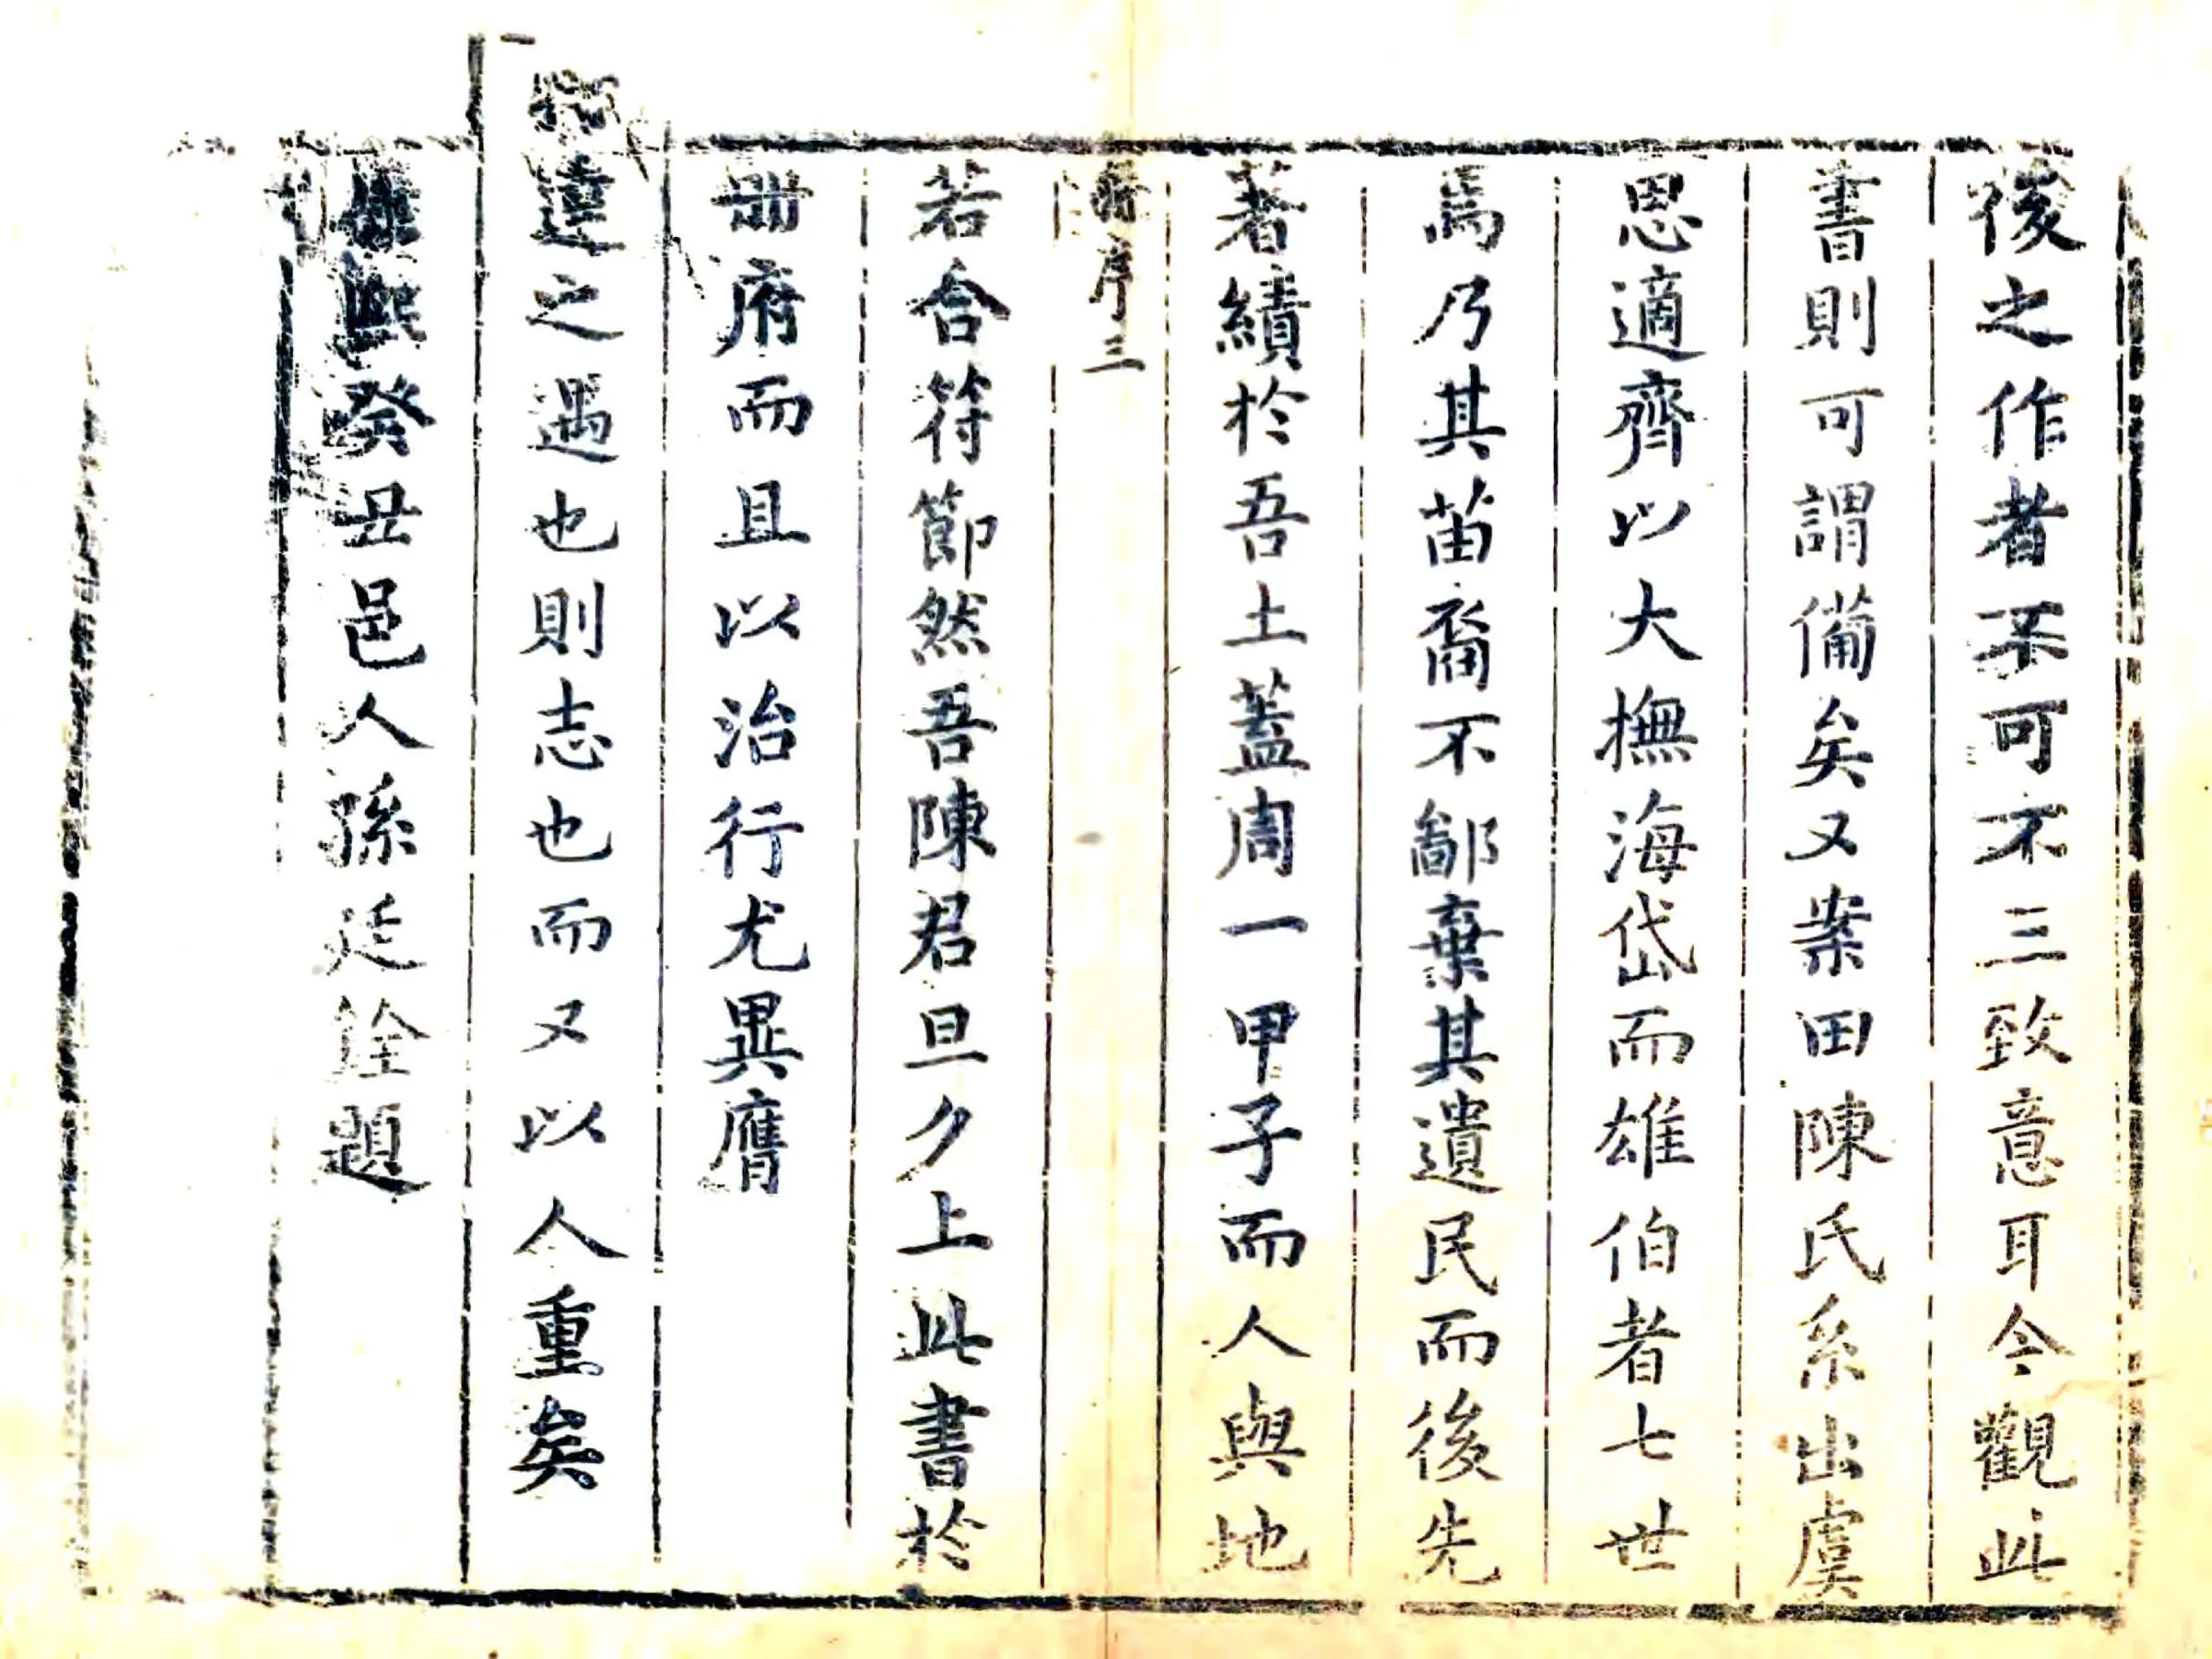 後之作者不可不三致意耳今觀此
書則可謂備矣又案田陳氏系出虞
思適齊以大撫海岱而雄伯者七世
焉乃其苗裔不鄙棄其遺民而後先
著績於吾土蓋周一甲子而人與地
序三
若合符節然吾陳君旦夕上此書於
冊府而且以治行尤異膺
達之遇也則志也而又以人重矣
康熙癸丑邑人孫廷銓題